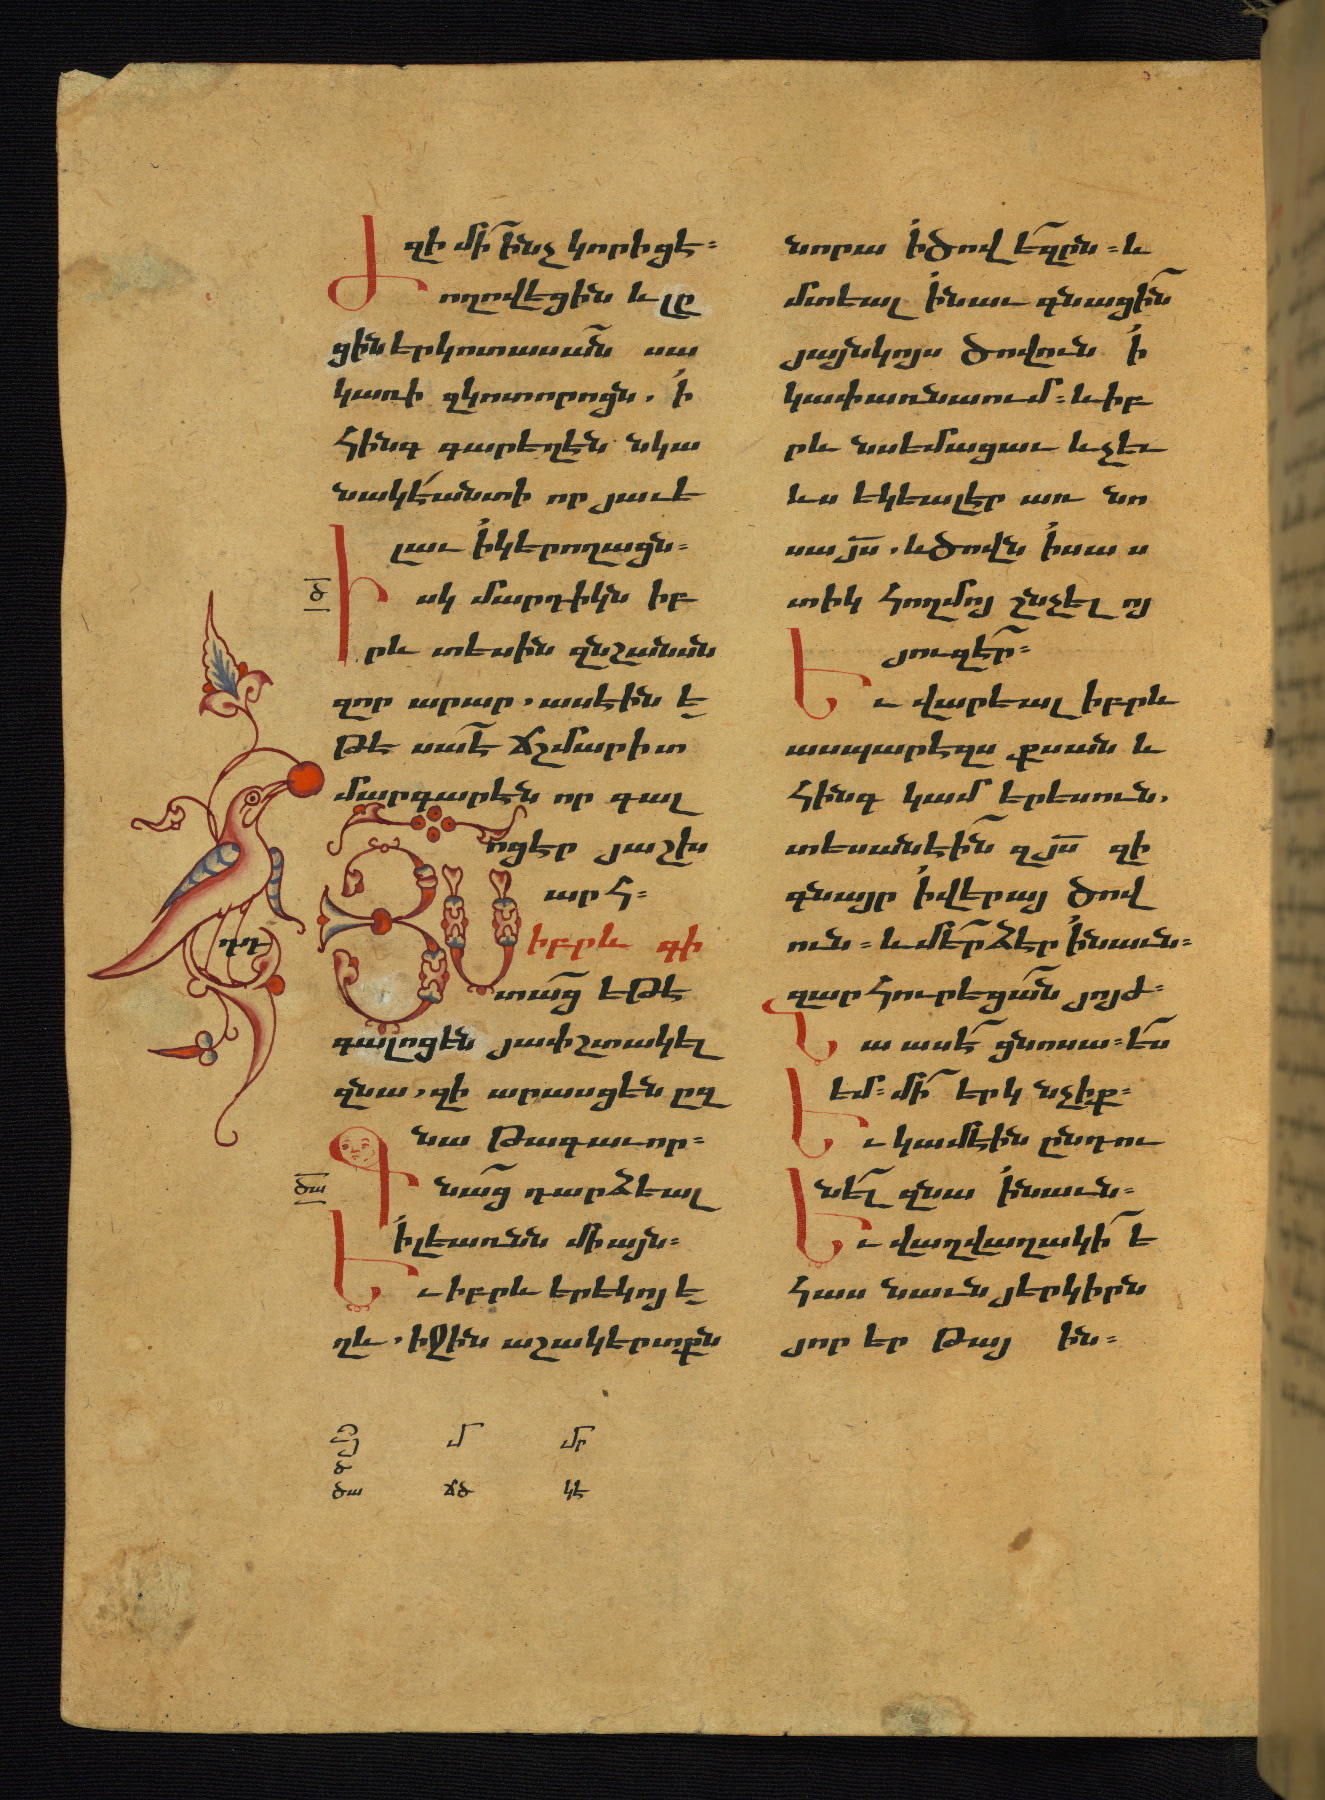 զի մի՛ ինչ կորիցէ։
Ժողովեցին և լը
ցին երկոտասան սա
կառի զկոտորոցն. ի
հինգ գարեղէն նկա
նակէ անտի որ յաւե
լաւ ի կերողացն։
ծ
Իսկ մարդիկն իբ
րև տեսին զնշանսն
զոր արար, ասէին ե
թե սա է ճշմարիտ
մարգարէն որ գալ
ոցէր յաշխ
արհ։
ՅՍ իբրև գի
տաց եթե
գալոցեն յափշտակել
զնա, զի արասցեն ըզ
նա թագաւոր։
ծա
Գնաց դարձեալ
ի լեառնն միայն։
Եւ իբրև երեկոյ ե
ղև, իջին աշակերտքն
նորա ի ծովեզրն։ և
մտեալ ի նաւ գնացին
յայնկոյս ծովուն ի
կափառնաում։ և իբ
րև նսեմացաւ և չեւ
ևս եկեալ էր առ նո
սա յս. և ծովն ի սաս
տիկ հողմոյ շնչելոյ
յուզէր։
Եւ վարեալ իբրև
ասպարէզս քսան և
հինգ կամ երեսուն,
տեսանէին զյս զի
գնայր ի վերայ ծով
ուն։ և մերձ էր ի նաւն։
զարհուրեցան յոյժ։
Նա ասէ ցնոսա։ ես
եմ։ մի երկնչիք։
Եւ կամէին ընդու
նել զնա ի նաւն։
Եւ վաղվաղակի ե
հաս նաւն յերկիրն
յոր երթայ ին։
մ մր
ծ
ծա ճծ կէ